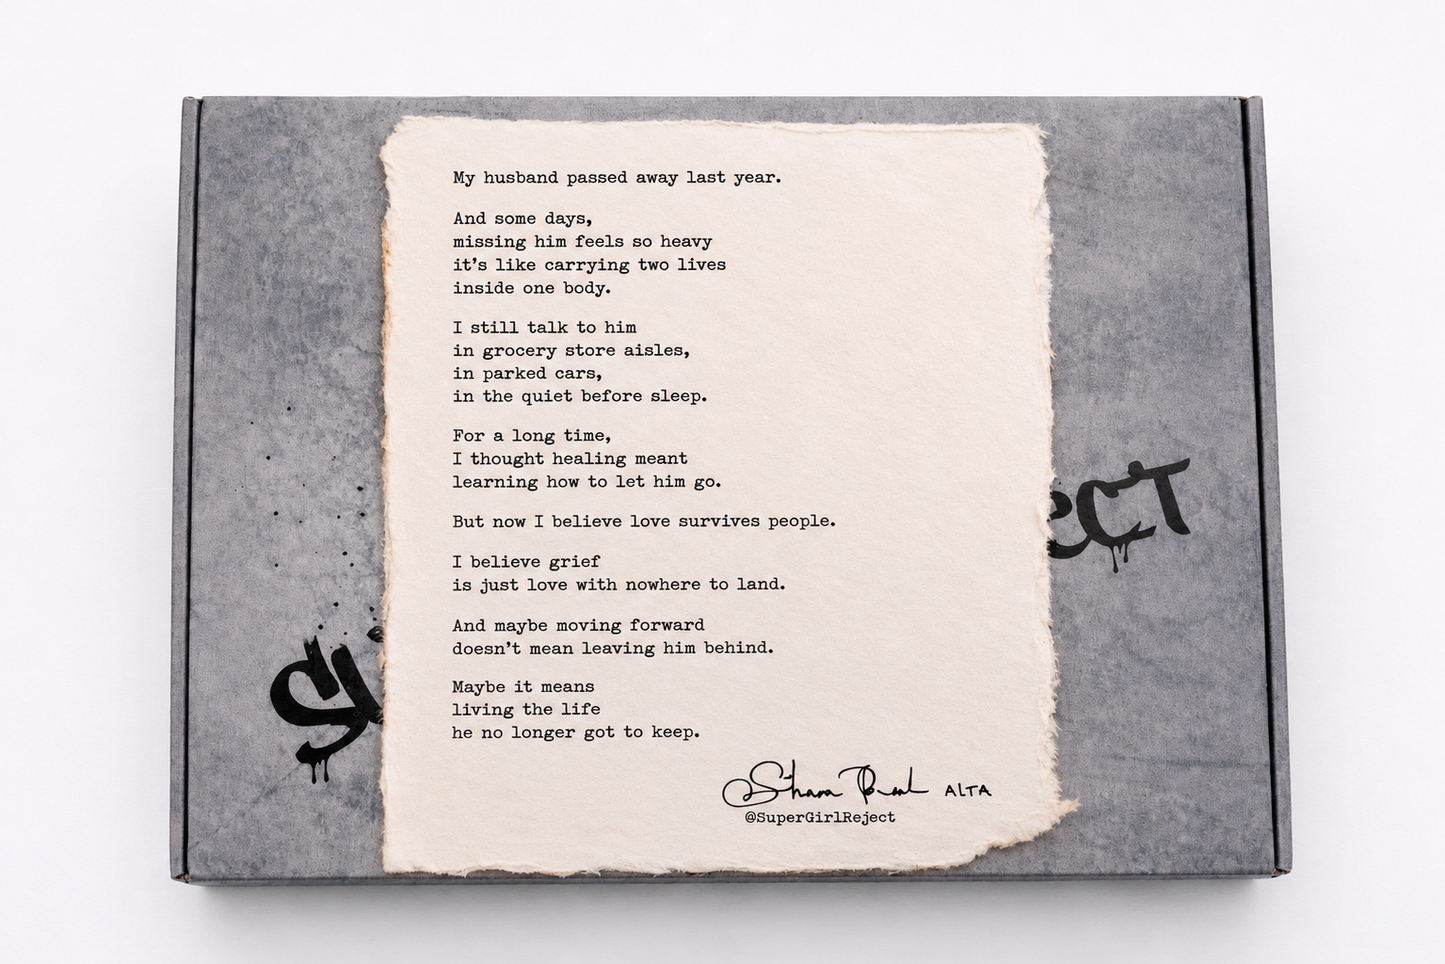 My husband passed away last year.
And some days,
missing him feels so heavy
it's like carrying two lives
inside one body.
I still talk to him
in grocery store aisles,
in parked cars,
in the quiet before sleep.
For a long time,
I thought healing meant
learning how to let him go.
But now I believe love survives people.
I believe grief
is just love with nowhere to land.
And maybe moving forward
doesn't mean leaving him behind.
Maybe it means
living the life
he no longer got to keep.
ALTA
@SuperGirlReject